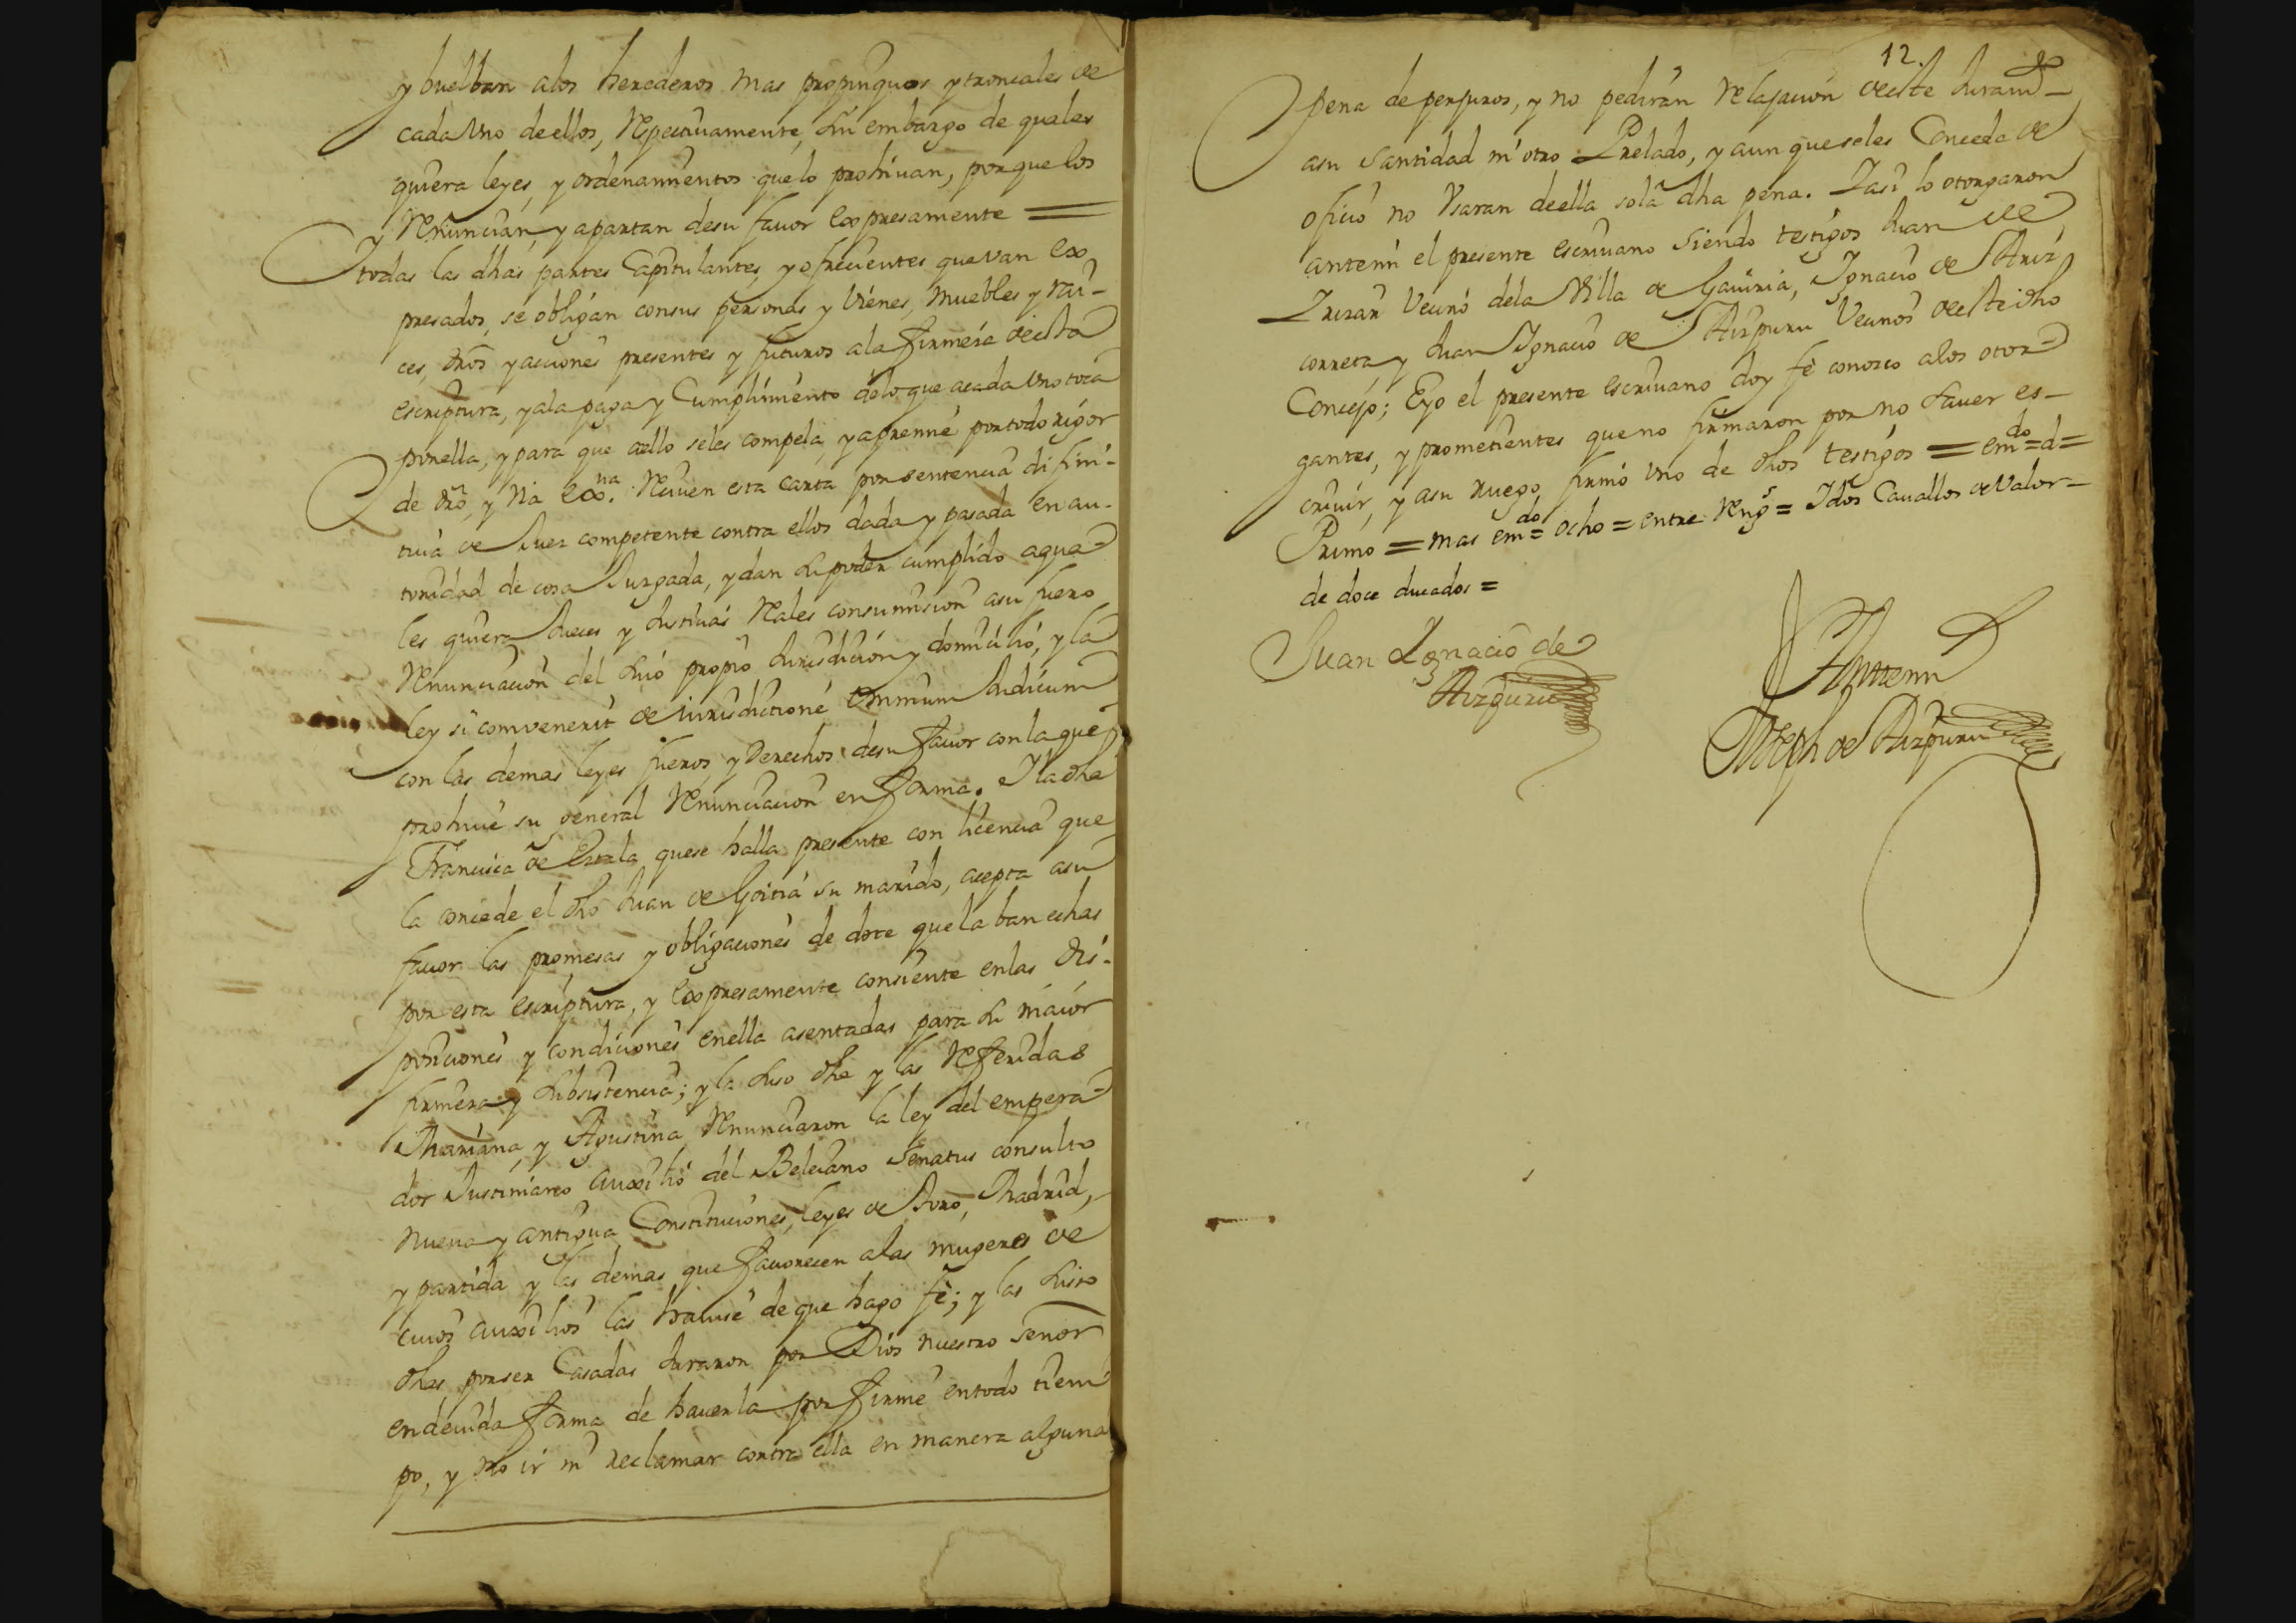 y buelban alos herederos mas propinquos y troncales de
cada Uno de ellos, Respectiuamente, sin embargo de quales
quiera leyes, y ordenamientos que lo prohiuan, porque los
Renuncian, y apartan desu fauor expresamente =
Y todas las dhas partes Capitulantes, y ofrecientes que van ex
presados, se obligan consus personas y Vienes, muebles y rai-
ces, dros y acciones presentes y futuros ala firmesa desta
escriptura, y ala paga y Cumplimiento delo que acada Uno toca
por ella, y para que aello seles compela, y apremie por todo rigor
de dro, y Via exᵛᵃ. Reciuen esta carta por sentencia difini-
tiua de Juez competente contra ellos dada y pasada en au-
toridad de cosa Jusgada, y dan su poder cumplido aqua-
les quiera Jueces y Justicias Reales consumision asu fuero
Renunciacion del suio propio Jurisdicion y domicilio, y la
ley si comvenerit de iurisdictione omnium Judicum
con las demas leyes fueros y Derechos desu fauor con la que
prohiue su general Renunciacion en forma. Y la dha
Francisca de quese halla presente con licencia que
la concede el dho Juan de Goitia su marido, acepta asu
fauor las promesas y obligaciones de dote que la ban echas
por esta escriptura, y expresamente consiente enlas dis-
posiciones y condiciones enella asentadas para su maior
firmesa y subsistencia; y la suso dha y las Referidas
Mariana, y Agustina Renunciaron la ley del empera-
dor Justiniano auxilio del Beleiano Senatus consulto
nueua y antigua Constituciones, leyes de Toro, Madrid,
y partida y las demas que fauorecen alas mugeres de
cuios auxilios las hauise de que hago fe; y las suso
dhas por ser Casadas Juraron por Dios nuestro Señor
en deuida forma de hauerla por firme entodo tiem-
po, y no ir ni reclamar contra ella en manera alguna
12.
pena de perjuros, y no pediran Relajacion deste Juramᵗᵒ
asu Santidad ni otro Prelado, y aun que seles Conceda de
oficio no Usaran de ella sola dha pena. Y asi lo otorgaron
antemi el presente escriuano siendo testigos Juan de
Vecino dela Villa de Gauiria, Ygnacio de Ariz
correta y Juan Ygnacio de Aizpuru Vecinos deste dho
Concejo; E yo el presente escriuano doy fe conozco alos otor-
gantes, y prometientes que no firmaron por no sauer es-
criuir, y asu ruego firmó Uno de dhos testigos = emᵈᵒ = d =
Primo = mas emᵈᵒ = ocho = entre Rengˢ = Y dos Cauallos de Valor
de doce ducados =
Juan Ygnacio de
Aizpuru
Antemi
Joseph de Aizpuru